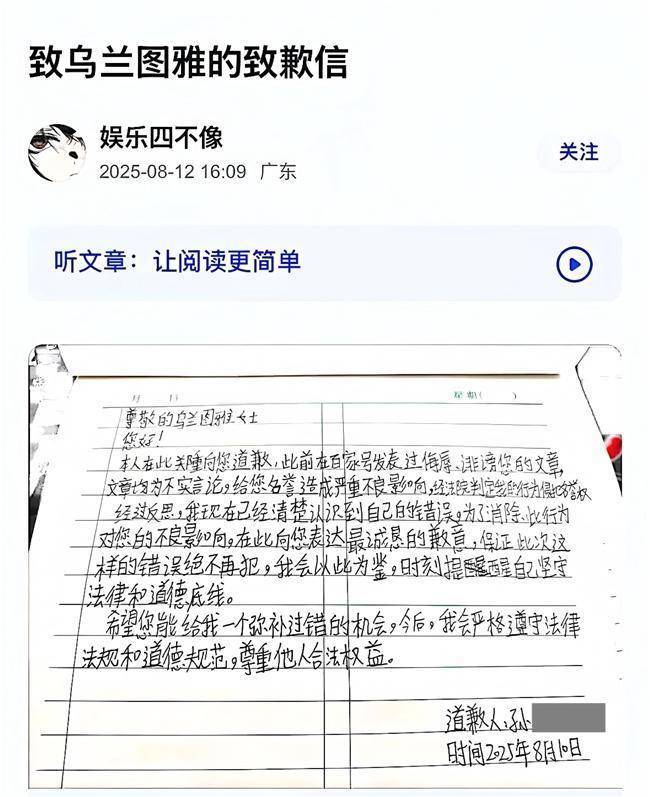 致乌兰图雅的致歉信
娱乐四不像
关注
2025-08-12 16:09 广东
听文章：让阅读更简单
月 日
星期( )
尊敬的乌兰图雅女士
您好！
本人在此关隆向您道歉，此前在百家号发表过侮辱、诽谤您的文章，
文章均为不实言论，给您名誉造成严重不良影响，经法院判定我的行为侵犯名誉权
经过反思，我现在已经清楚认识到自己的错误，为了消除此行为
对您的不良影响，在此向您表达最诚恳的歉意，保证此次这
样的错误绝不再犯，我会以此为鉴，时刻提醒自己坚守
法律和道德底线。
希望您能给我一个弥补过错的机会，今后，我会严格遵守法律
法规和道德规范，尊重他人合法权益。
道歉人：孙
时间2025年8月10日